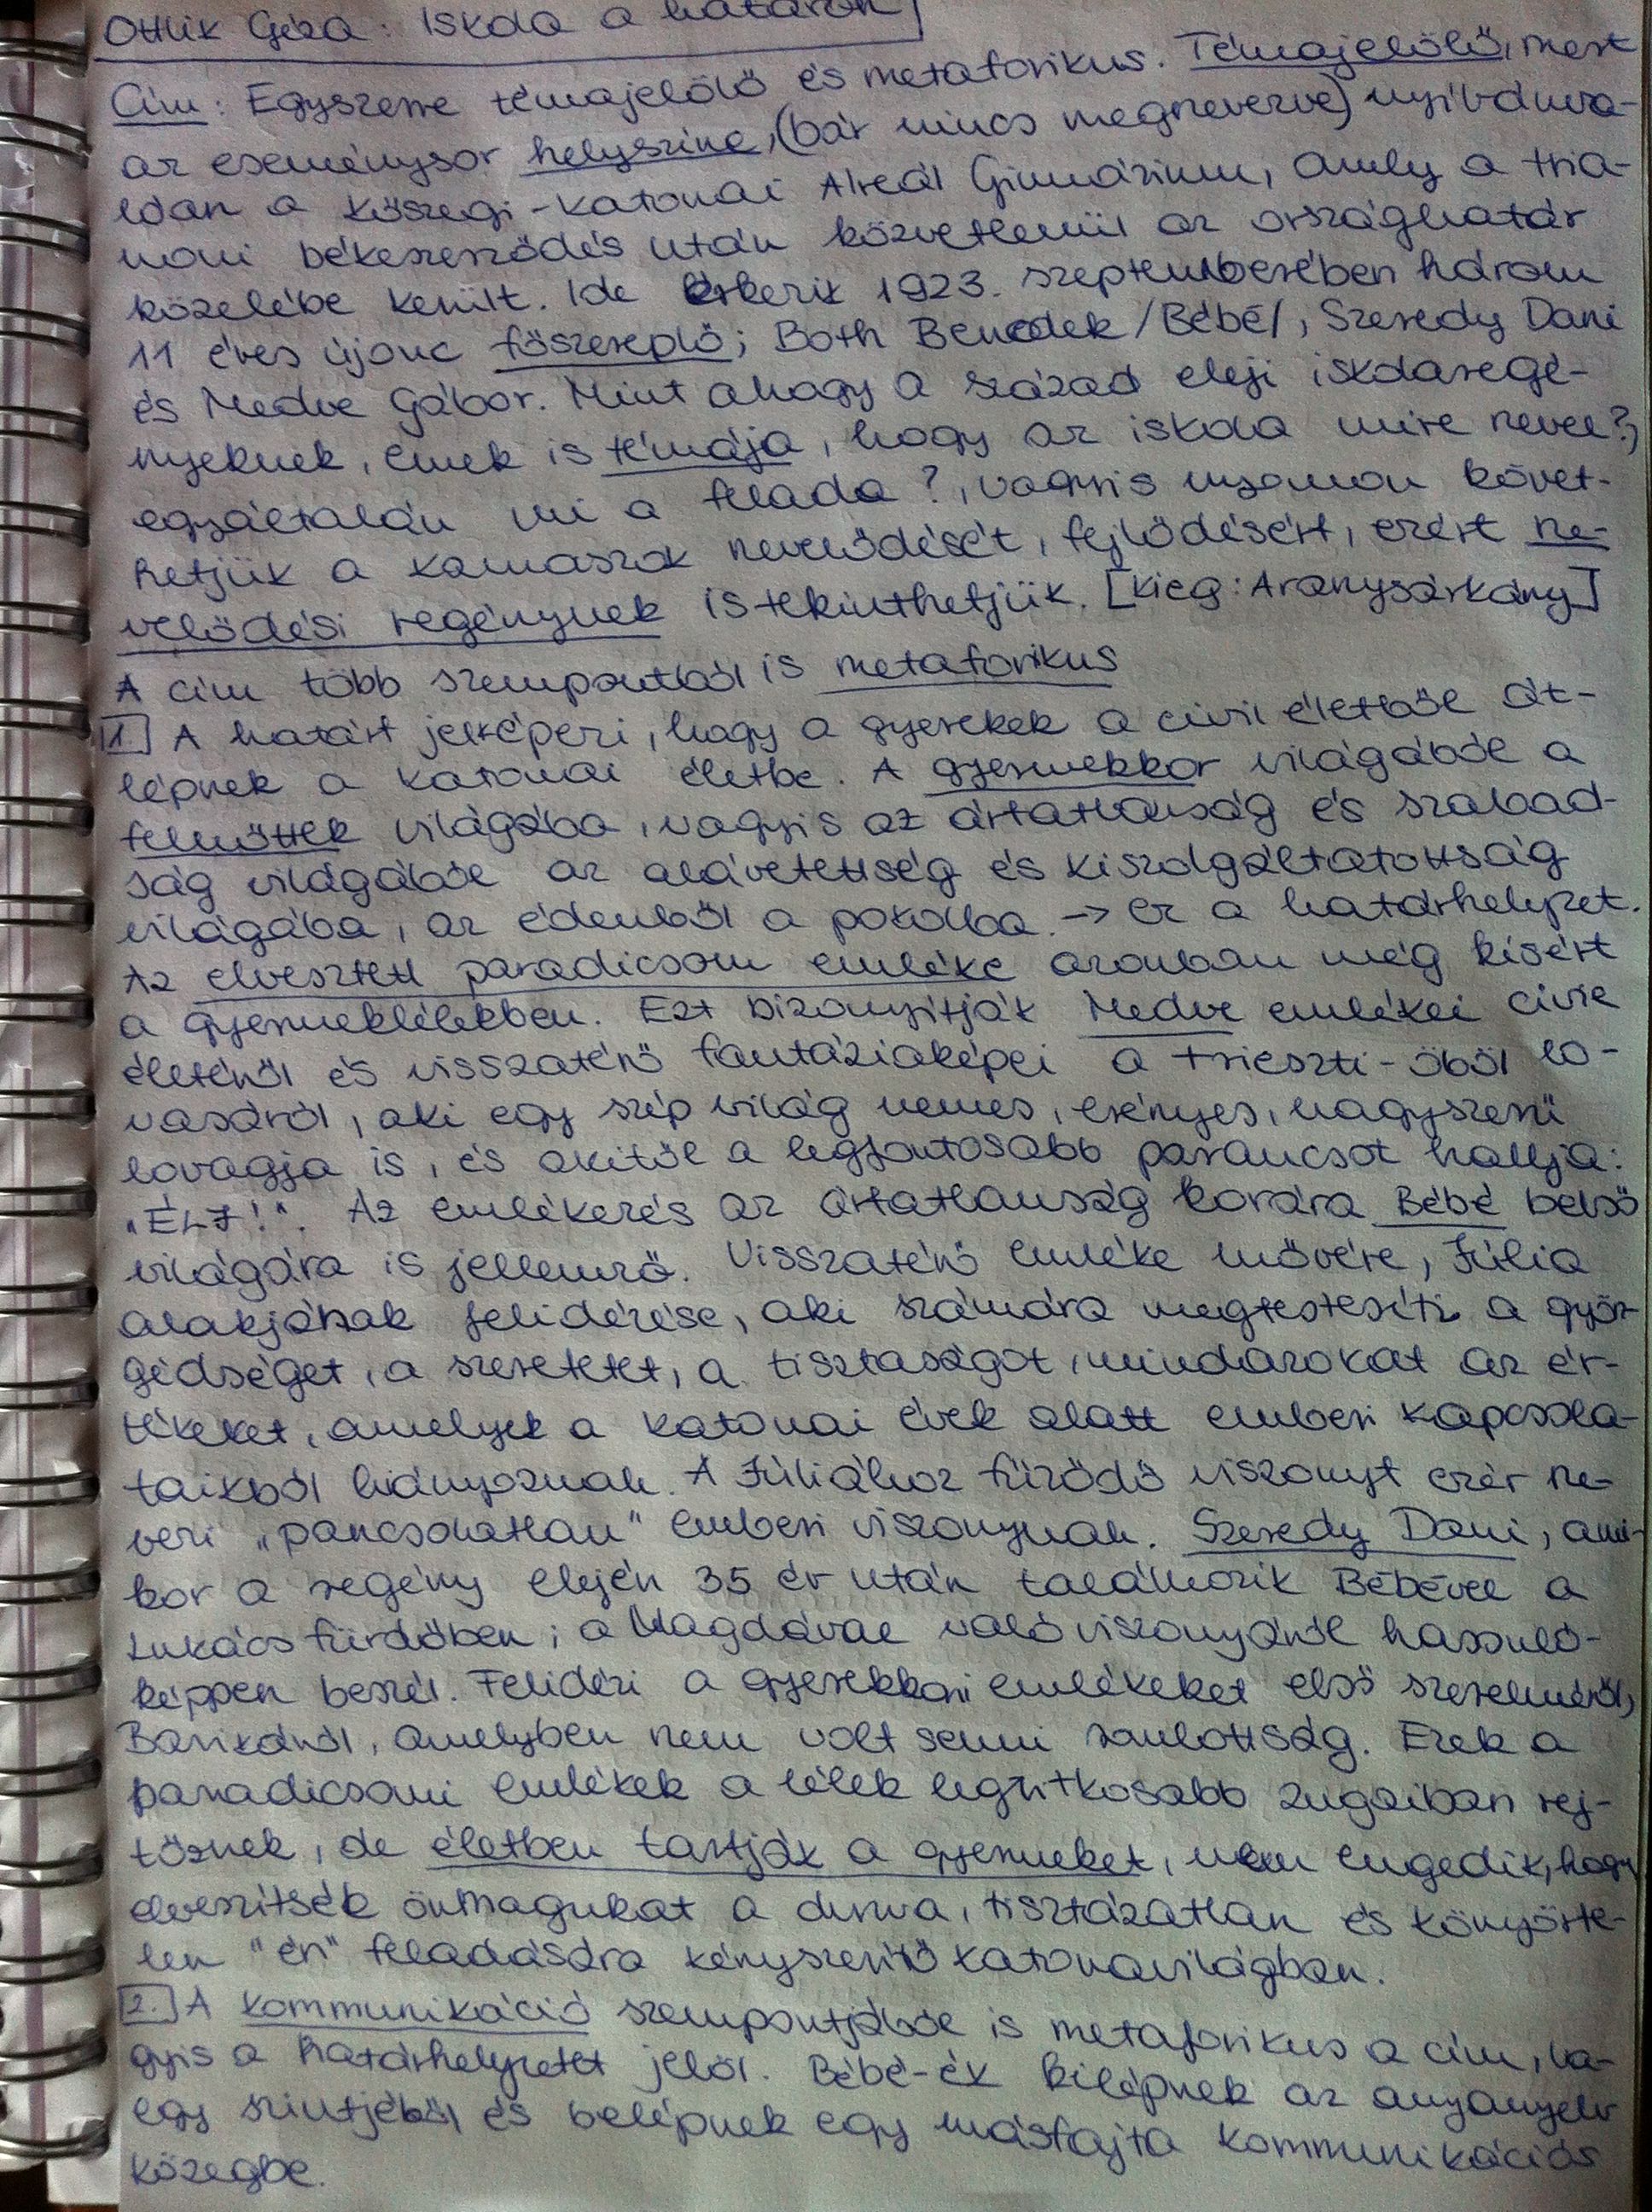 Ottlik Géza: Iskola a határon
Cím: Egyszerre témajelölő és metaforikus. Témajelölő, mert
az eseménysor helyszíne, (bár nincs megnevezve) nyilvánva-
lóan a kőszegi-katonai Alreál Gimnázium, amely a tria-
noni békeszerződés után közvetlenül az országhatár
közelébe került. Ide érkezik 1923. szeptemberében három
11 éves újonc főszereplő; Both Benedek /Bébé/, Szeredy Dani
és Medve Gábor. Mint ahogy a század eleji iskolaregé-
nyeknek, ennek is témája, hogy az iskola mire nevel?,
egyáltalán mi a felada?, vagyis nyomon követ-
hetjük a kamaszok nevelődését, fejlődését, ezért ne-
velődési regénynek is tekinthetjük. [Kieg: Aranysárkány]
A cím több szempontból is metaforikus
1. A határt jelképezi, hogy a gyerekek a civil életből át-
lépnek a katonai életbe. A gyermekkor világából a
felnőttek világába, vagyis az ártatlanság és szabad-
ság világából az alávetettség és kiszolgáltatottság
világába, az édenből a pokolba. → ez a határhelyzet.
Az elvesztett paradicsom emléke azonban még kísért
a gyermeklélekben. Ezt bizonyítják Medve emlékei civil
életéről és visszatérő fantáziaképei a trieszti-öböl lo-
vasáról, aki egy szép világ nemes, erényes, nagyszerű
lovagja is, és akitől a legfontosabb parancsot hallja:
„ÉLJ!". Az emlékezés az ártatlanság korára Bébé belső
világára is jellemző. Visszatérő emléke nővére, Júlia
alakjának felidézése, aki számára megtestesíti a gyön-
gédséget, a szeretetet, a tisztaságot, mindazokat az ér-
tékeket, amelyek a katonai évek alatt emberi kapcsola-
taikból hiányoznak. A Júliához fűződő viszonyt ezér ne-
vezi „pancsolatlan" emberi viszonynak. Szeredy Dani, ami-
kor a regény elején 35 év után találkozik Bébével a
Lukács fürdőben; a Magdával való viszonyáról hasonló-
képpen beszél. Felidézi a gyerekkori emlékeket első szerelméről,
Barikáról, amelyben nem volt semmi romlottság. Ezek a
paradicsomi emlékek a lélek legtitkosabb zugaiban rej-
tőznek, de életben tartják a gyermeket, nem engedik, hogy
elveszítsék önmagukat a durva, tisztázatlan és könyörte-
len "én" feladására kényszerítő katonavilágban.
2. A kommunikáció szempontjából is metaforikus a cím, va-
gyis a határhelyzetet jelöl. Bébé-ék kilépnek az anyanyelv
egy szintjéből és belépnek egy másfajta kommunikációs
közegbe.